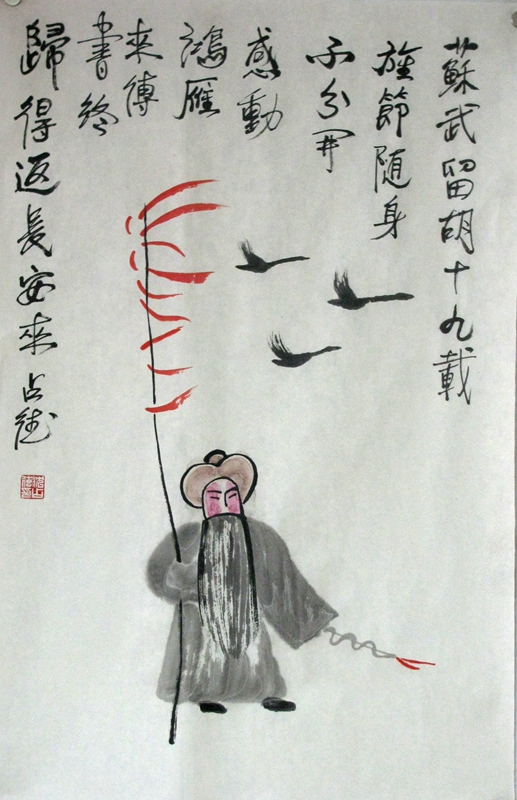 蘇武留胡十九載
旌節随身
不分开
感動
鴻雁
来傳
書終
歸得返長安來